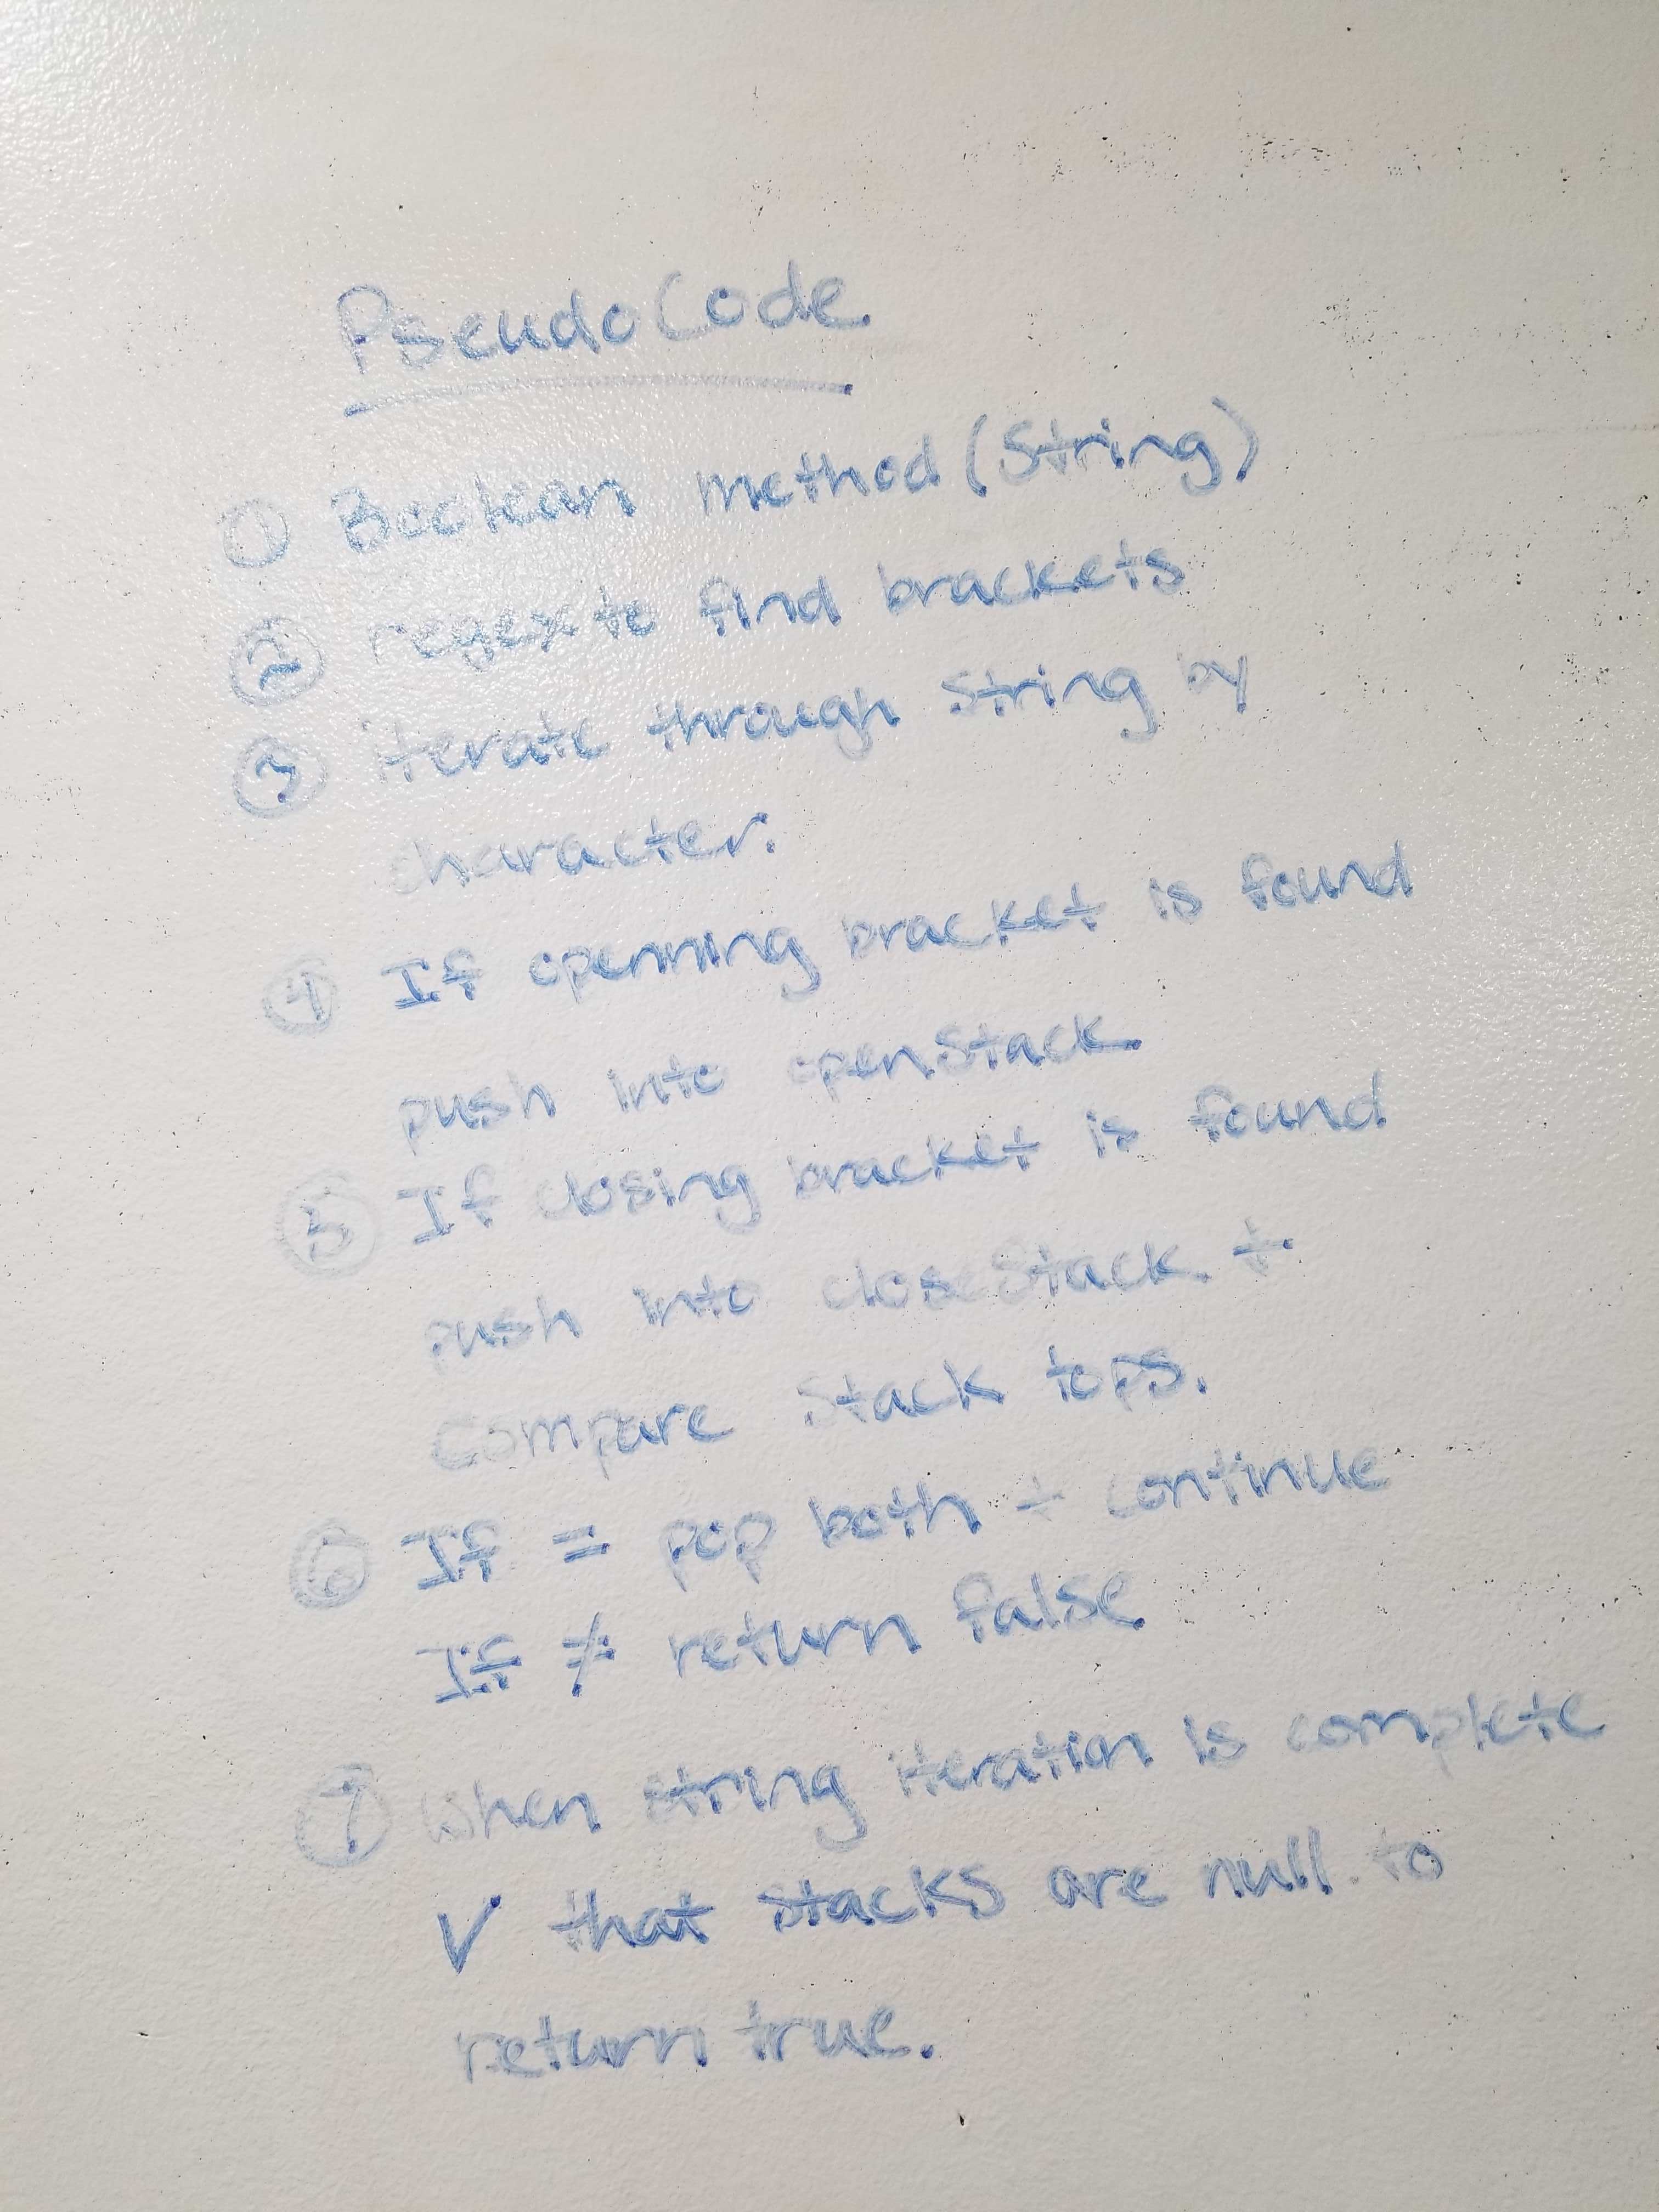 PseudoCode
① Boolean method (String)
② regex to find brackets
③ iterate through String by
character.
④ If openning bracket is found
push into openStack
⑤ If closing bracket is found
push into closeStack +
compare stack tops.
⑥ If = pop both + continue
If ≠ return false
⑦ when string iteration is complete
✓ that stacks are null to
return true.